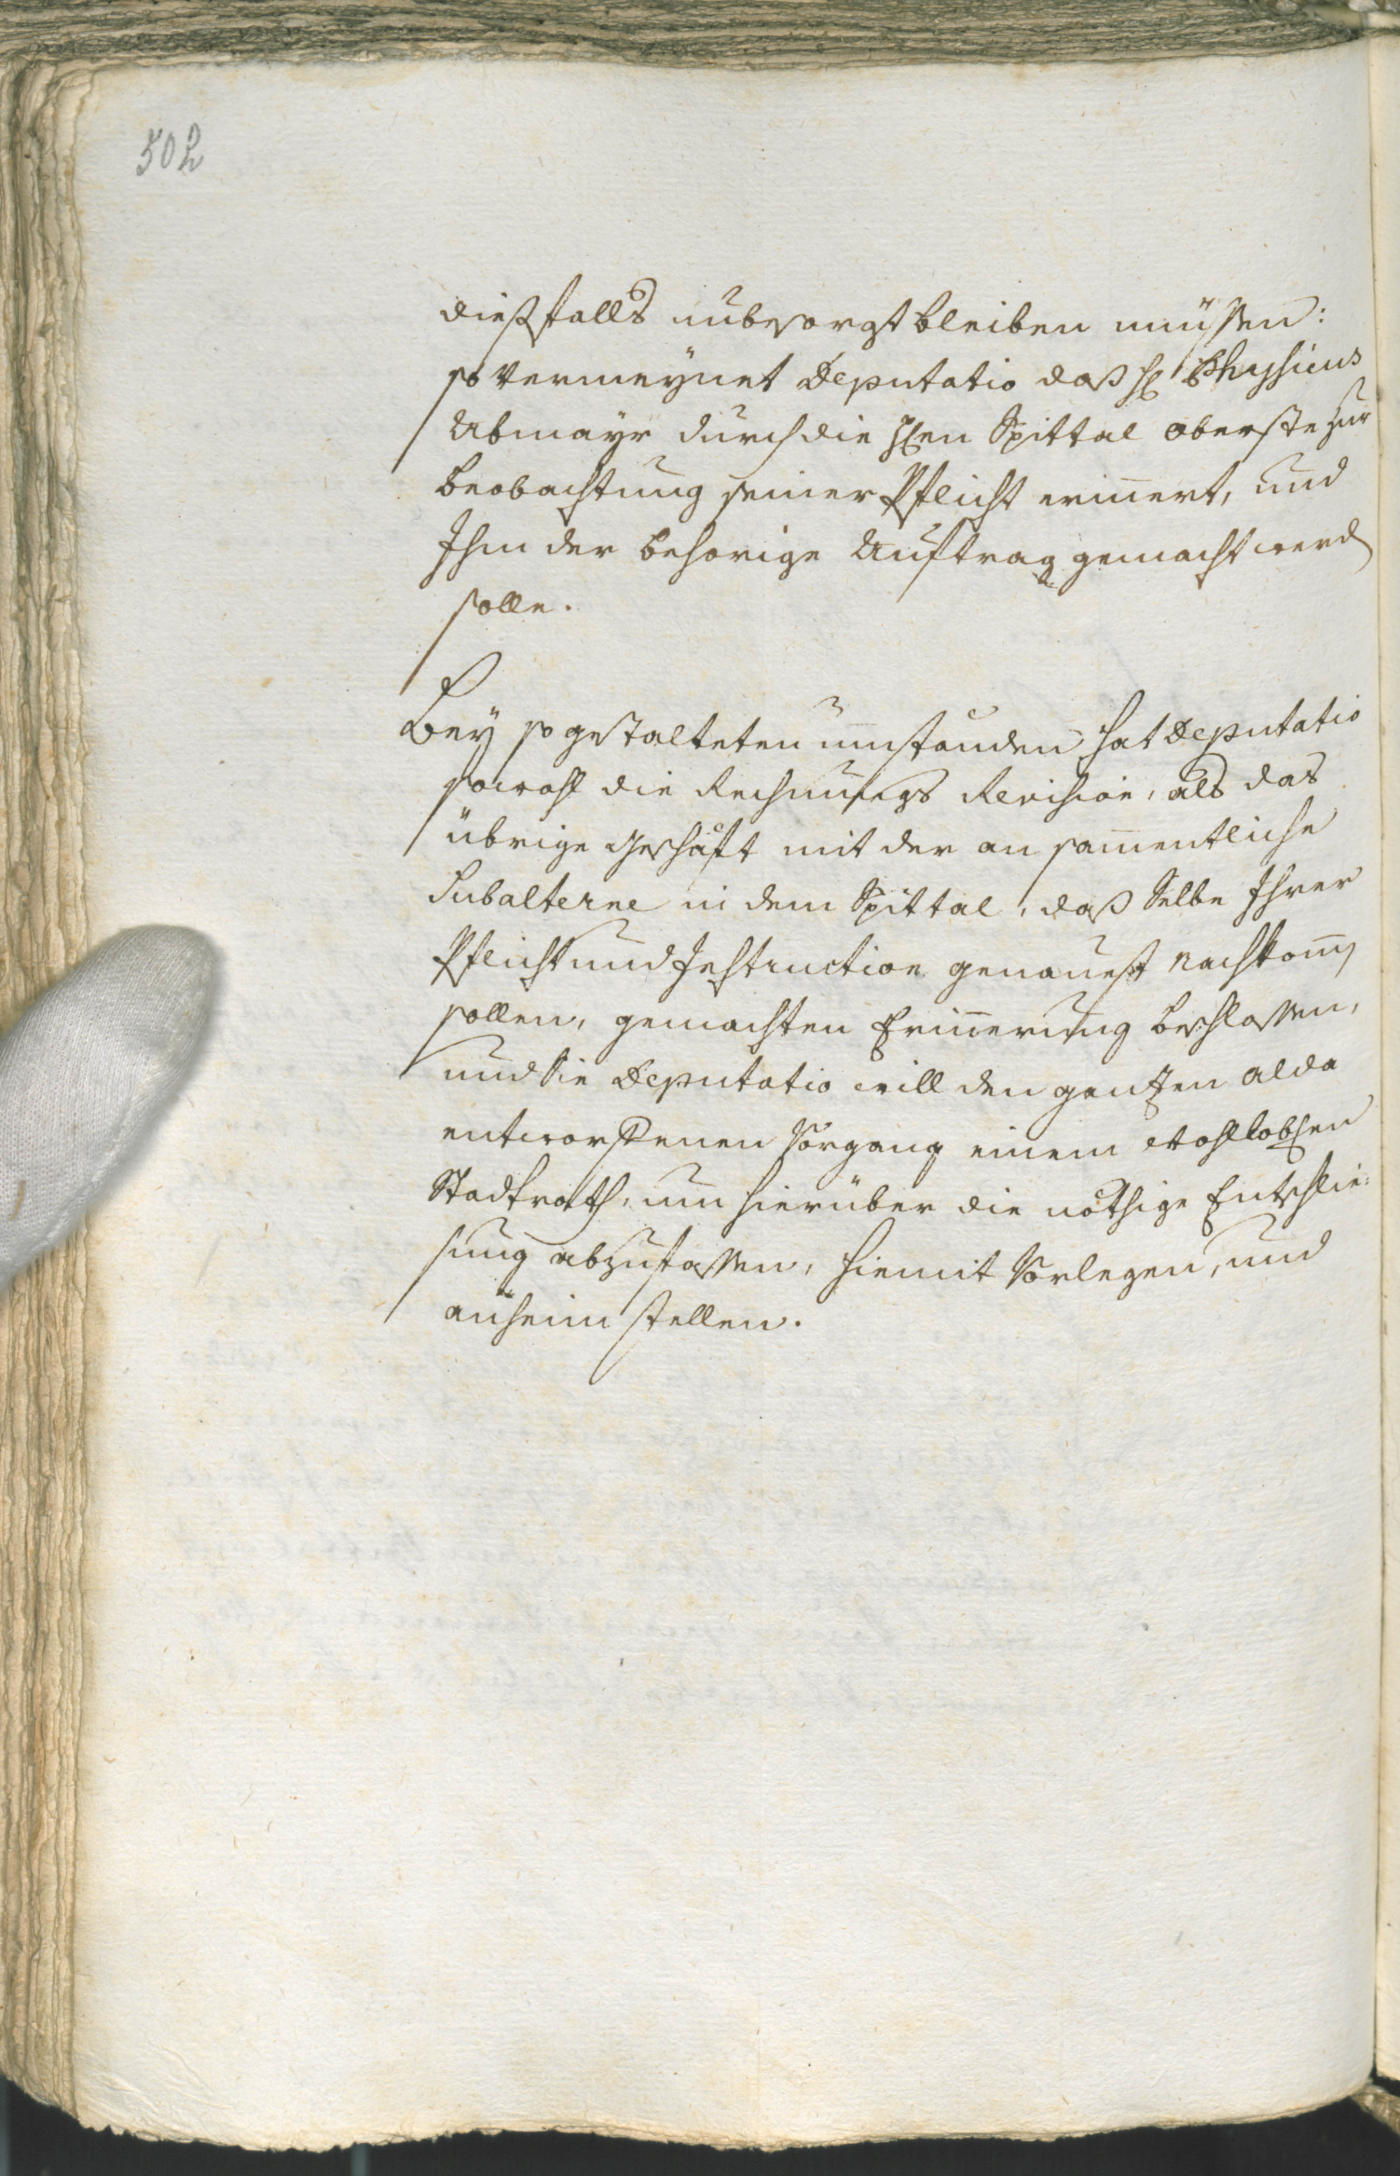 502
dießfalls unbesorgt bleiben müssen:
so vermeynet Deputatio daß H Physicus
Abmayr durch die Hen Spittal oberste zur
beobachtung seiner Pflicht erinnert, und
Ihm der behorige Auftrag gemacht werd
solle.
Bey so gestalteten umständen hat Deputatio
sowohl die Rechnungs Revision, als das
übrige Geschäft mit der an sammentliche
Subalterne in dem Spittal, daß Selbe Ihrer
Pflicht und Instruction genauest nachkom̅
sollen, gemachten Erinnerung beschlossen,
und Sie Deputatio will den gantzen alda
entworffenen Vorgang einem Wohllobhen
Stadtrath, um hierüber die nöthige Entschlie:
sung abzufassen, hiemit Vorlegen, und
anheim stellen.